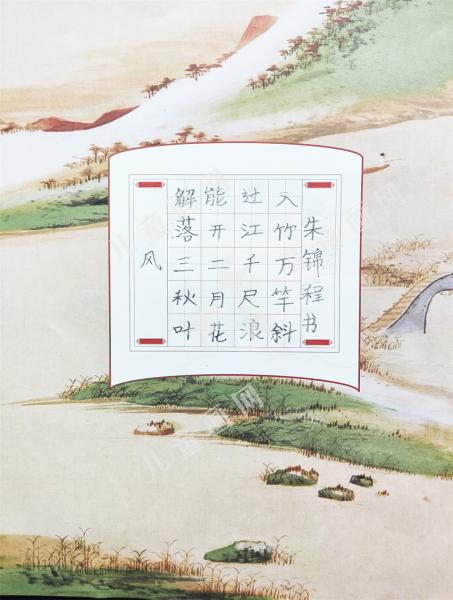 风
解落三秋叶
能开二月花
过江千尺浪
入竹万竿斜
朱锦程书